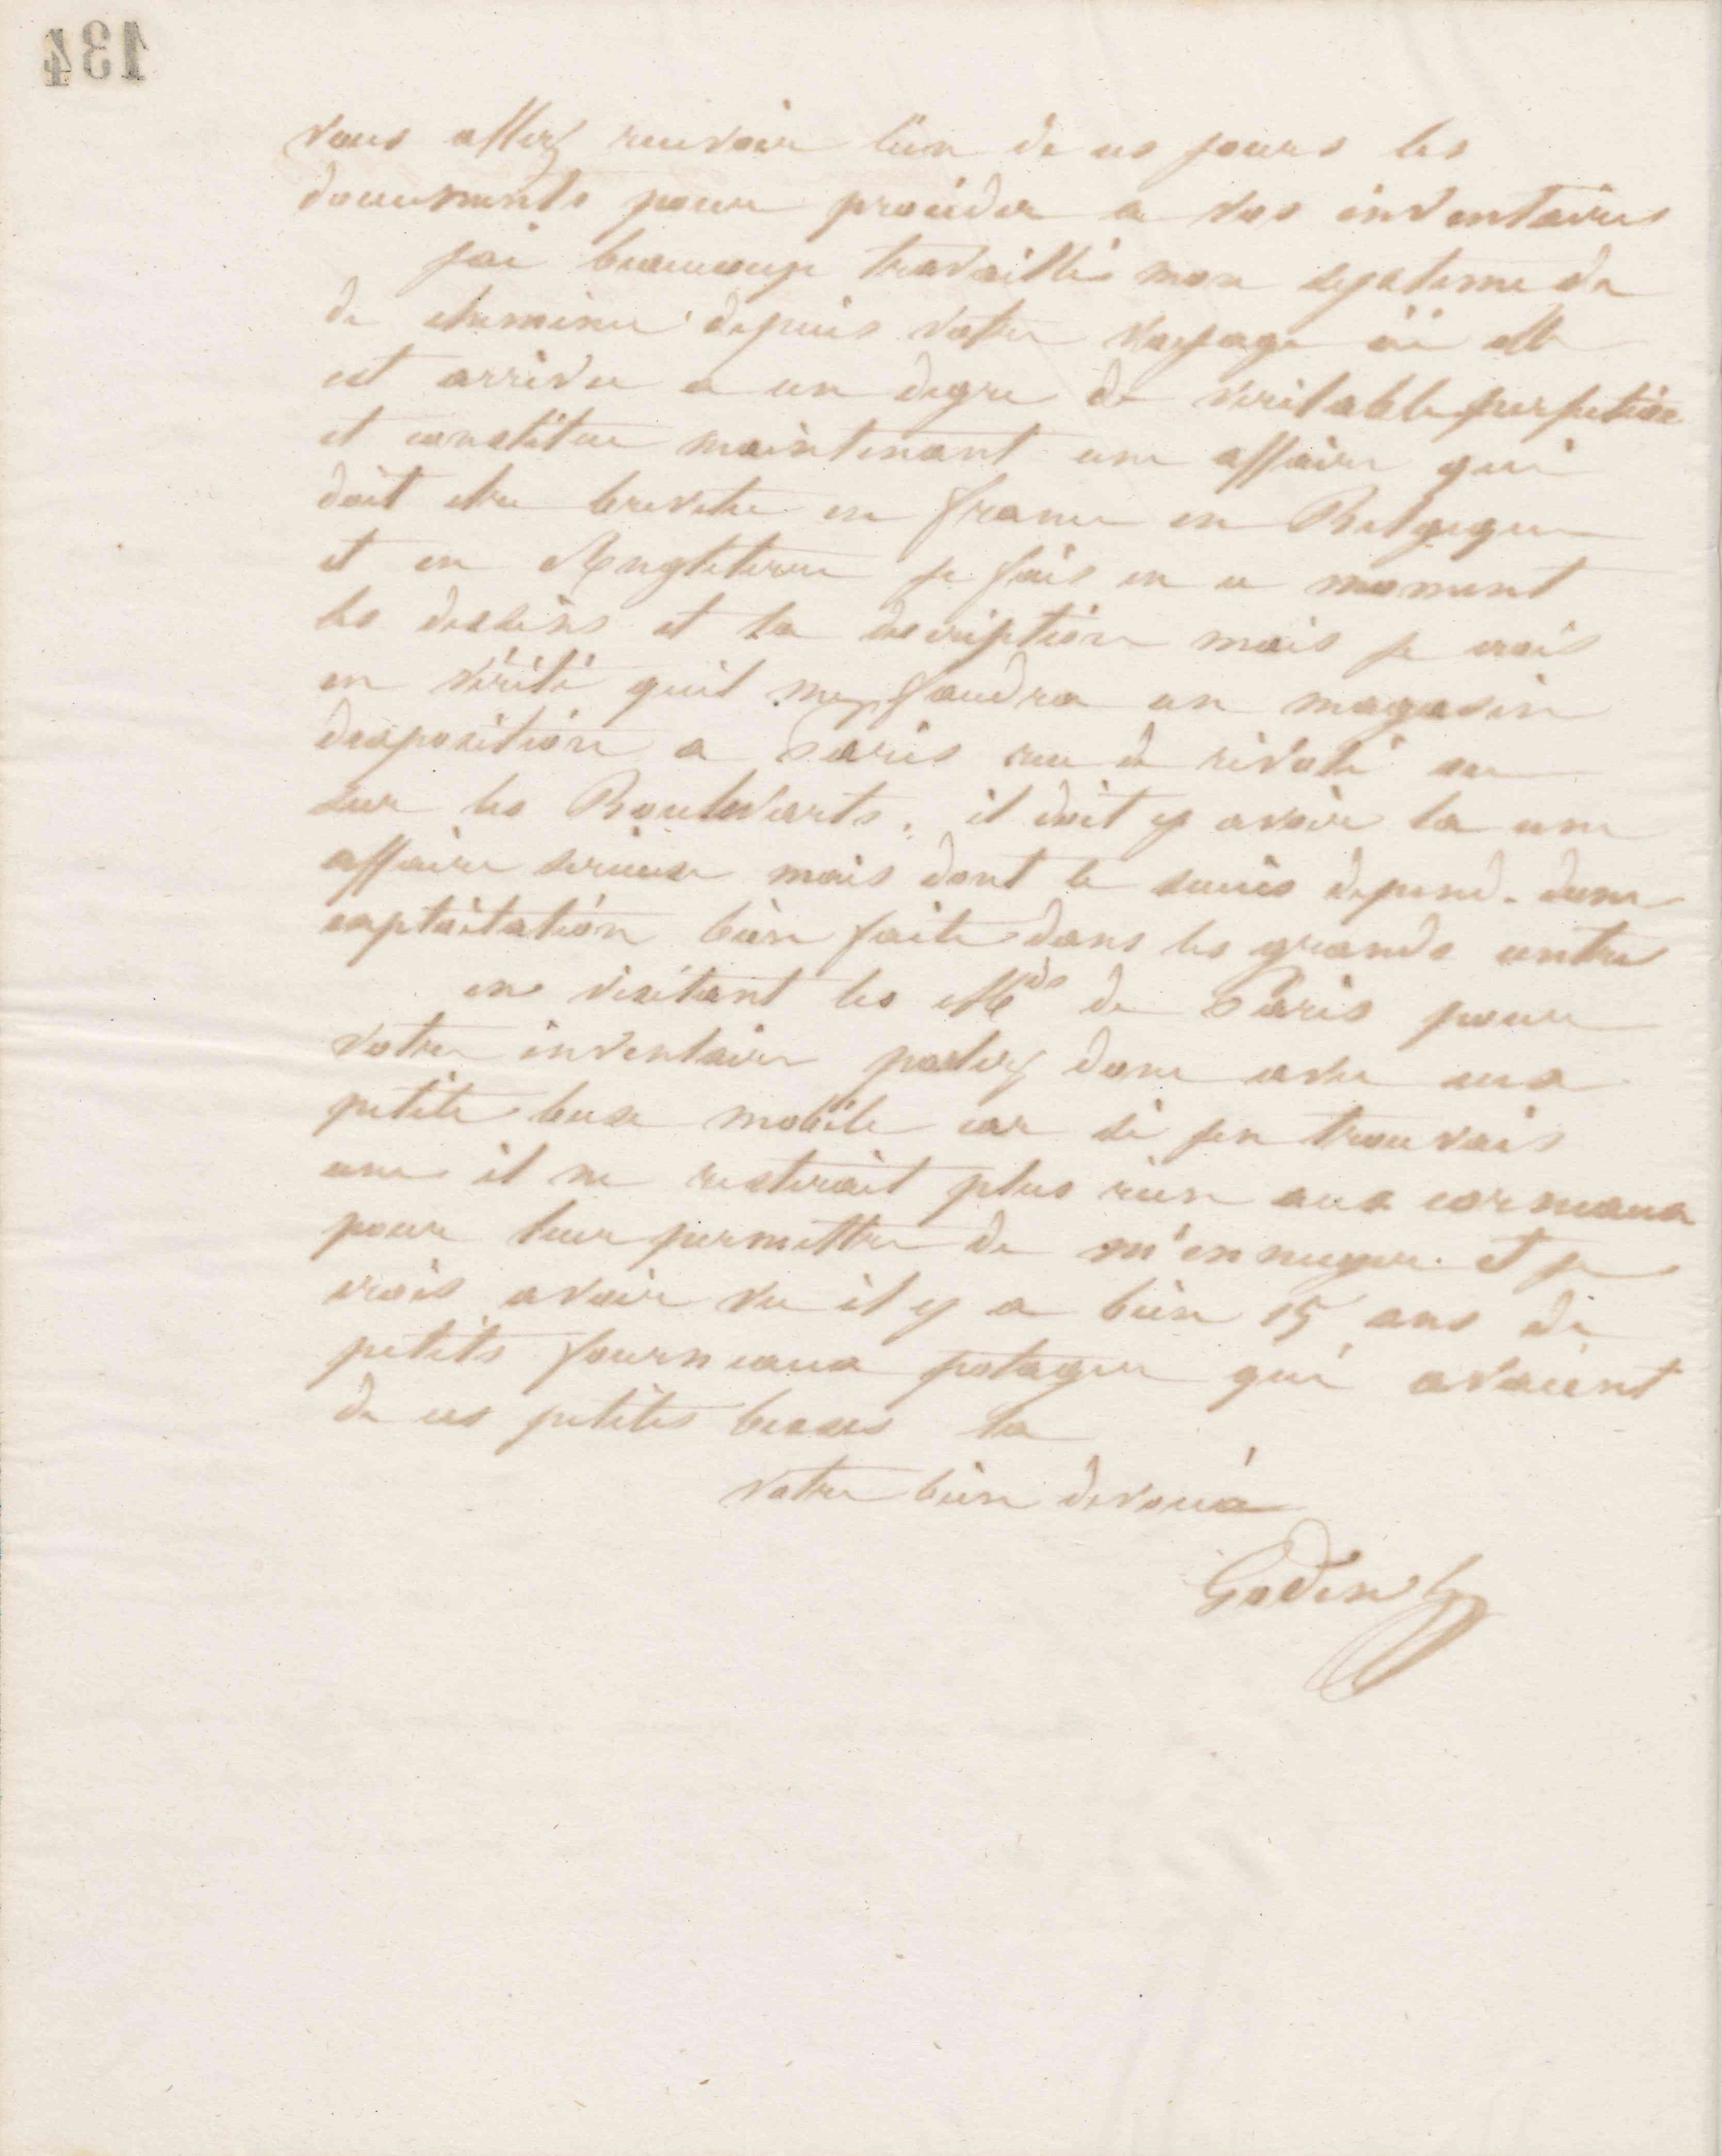 134
vous allez recevoir l'un de ces jours les
documents pour procéder a vos inventaires
jai beaucoup travaillé mon systeme de
de cheminee depuis votre voyage ou elle
est arrivee a un degre de veritable perfection
et constitue maintenant une affaire qui
doit etre brevetee en france en Belgique
et en Angleterre je fais en ce moment
les dessins et la description mais je crois
en vérité quil me faudra un magasin
dexposition a Paris rue de rivoli ou
sur les Boulevarts. il doit y avoir la une
affaire serieuse mais dont le succes depend dune
exploitation bien faite dans les grands centres
en visitant les Mds de Paris pour
votre inventaire parlez donc avec eux
petite buse mobile car si jen trouvais
une il ne resterait plus rien aux corneaux
pour leur permettre de m'ennuyer. et je
crois avoir vu il y a bien 15 ans de
petits fourneaux potager qui avaient
de ces petites buses la
votre bien devoué
Godin